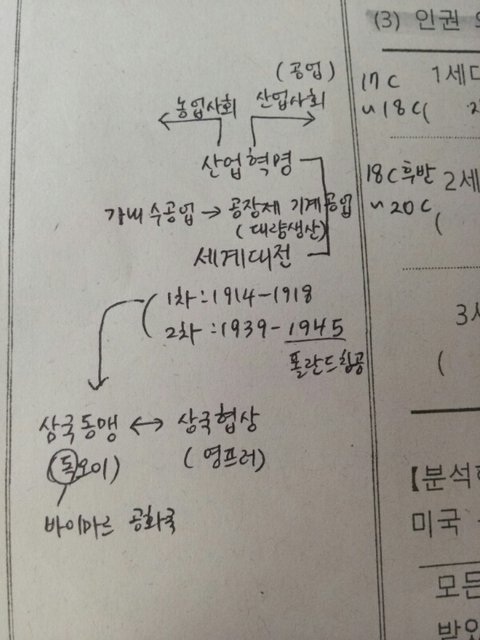 (3) 인권
(공업)
농업사회 산업사회
17C 1세대
~18C(
산업혁명
18C 후반 2세
~20C (
가내 수공업 → 공장제 기계공업
(대량생산)
세계대전
1차 : 1914-1918
2차 : 1939-1945
폴란드침공
3세
(
삼국동맹 ↔ 삼국협상
(독오이) (영프러)
바이마르 공화국
【분석
미국
모든
받았